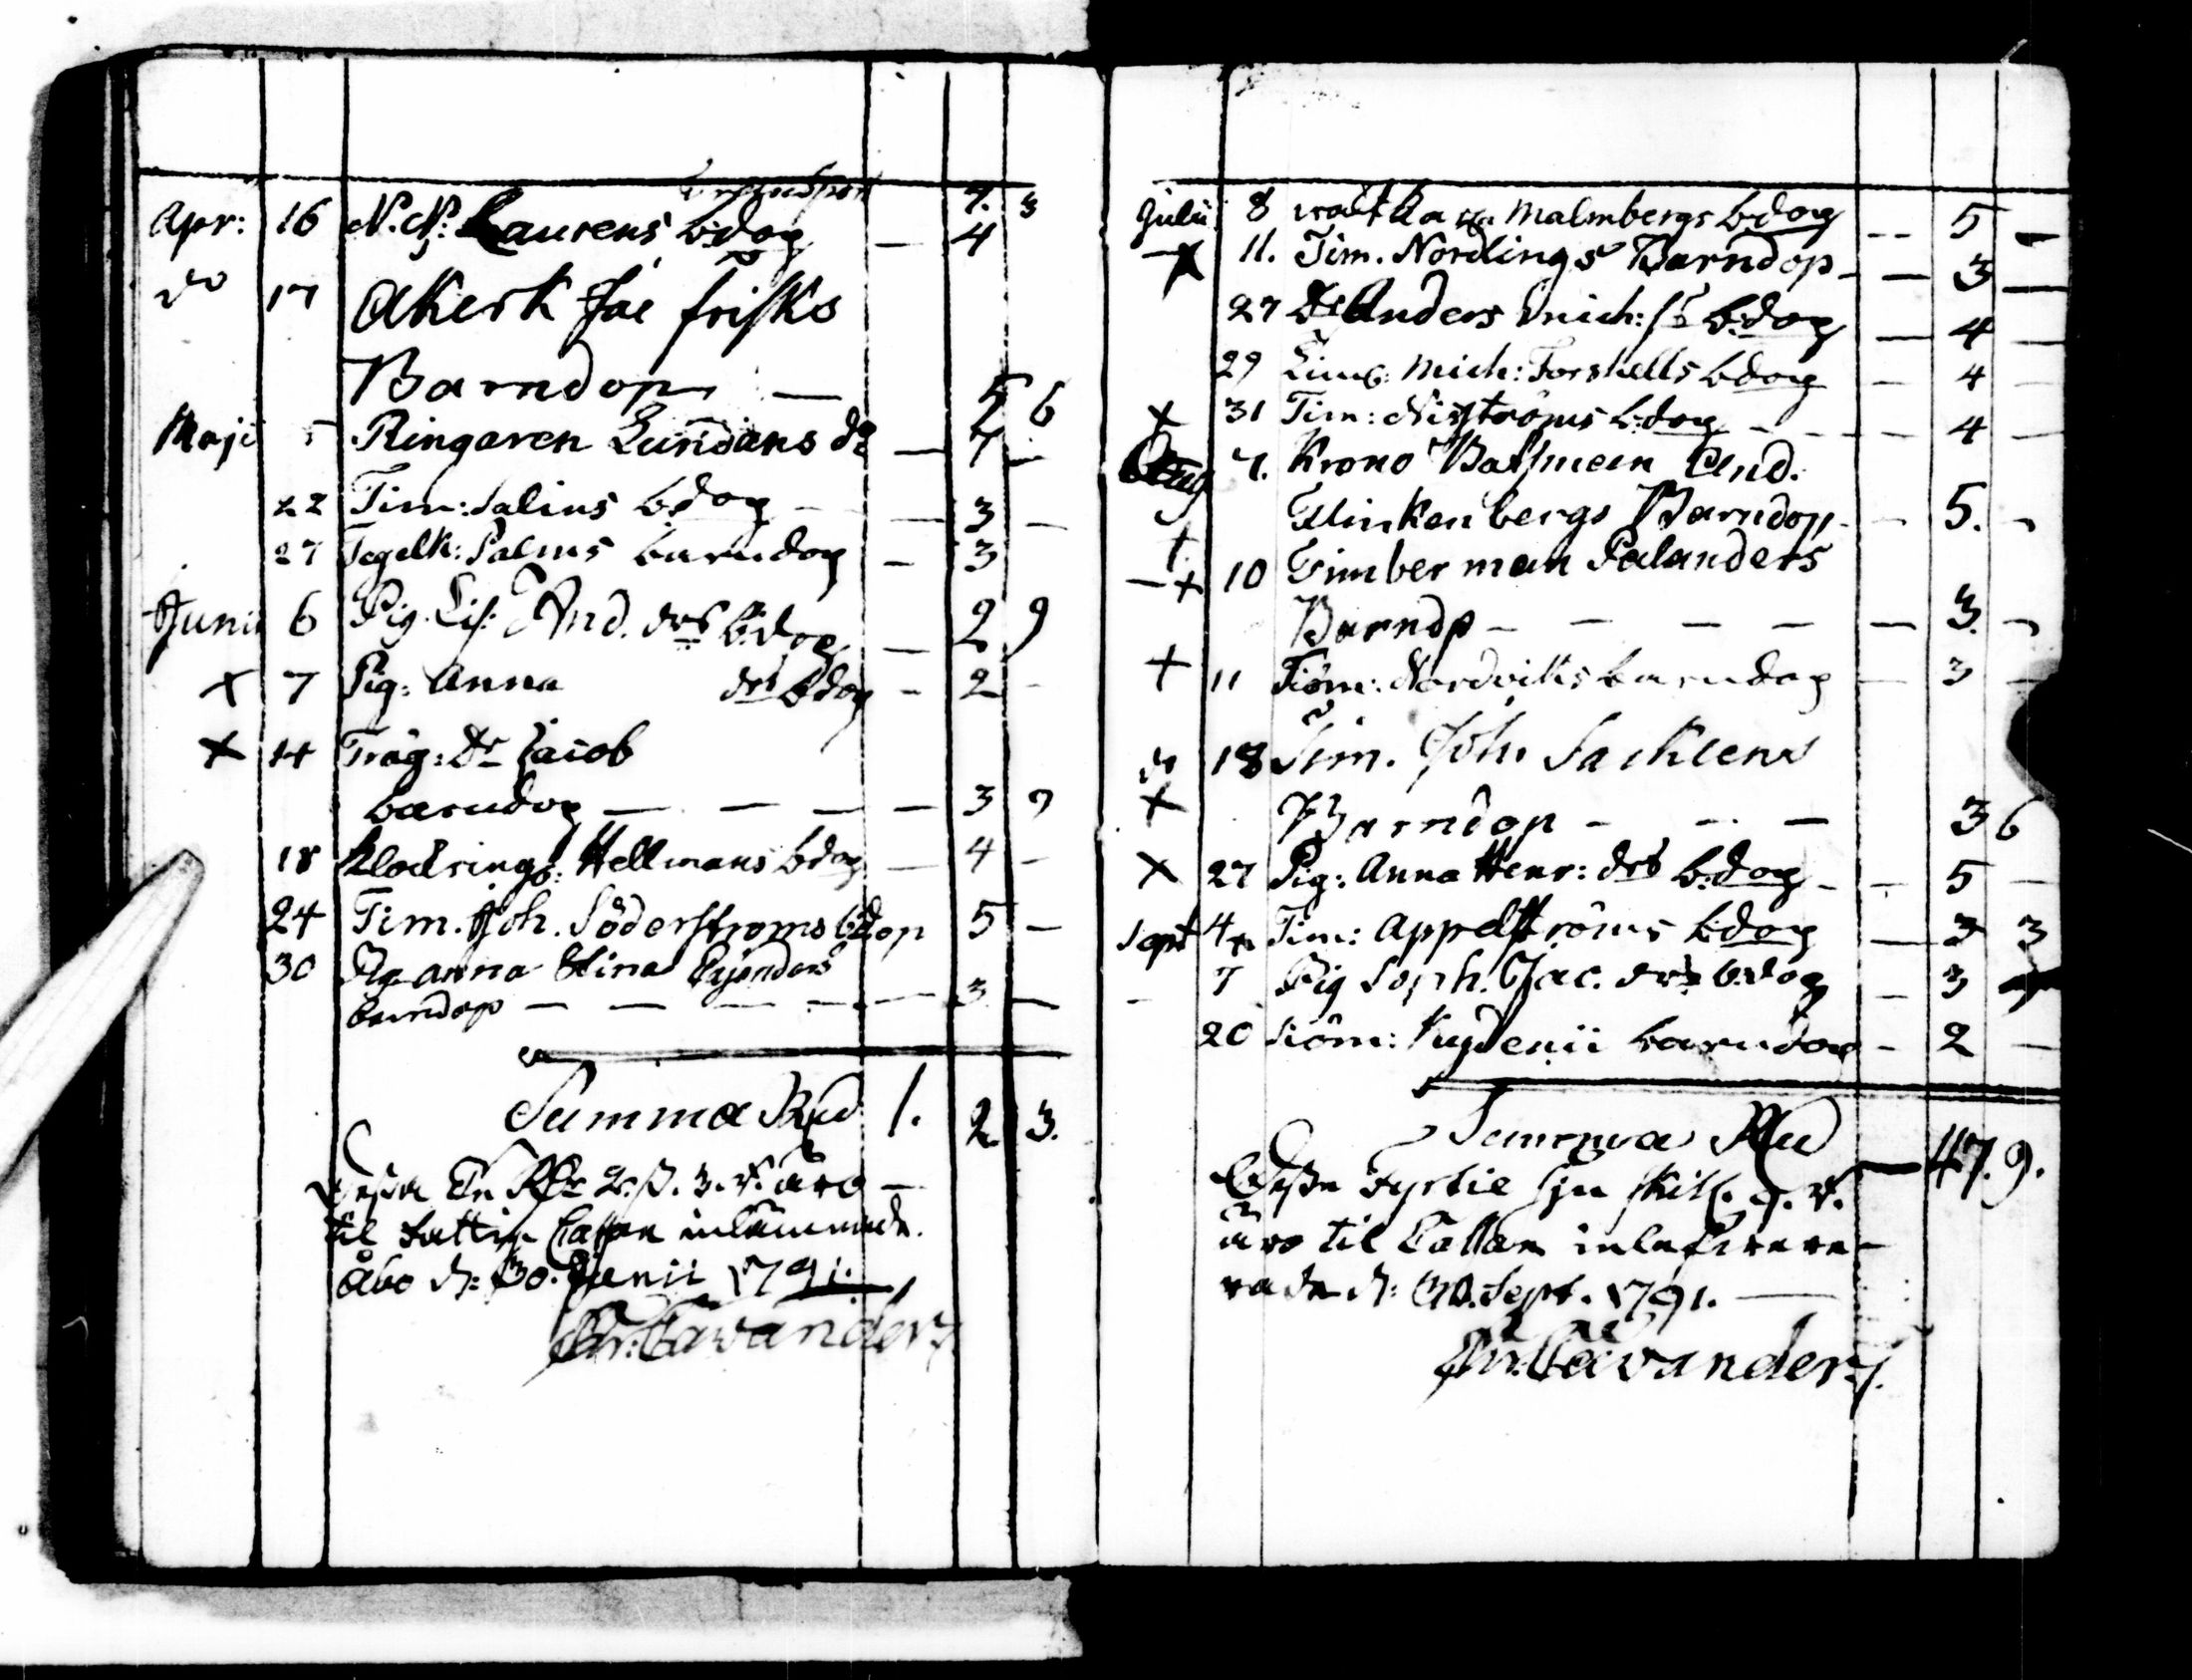 Transport 7. 3
Apr: 16 N. N. Laurens b:dop — 4
do 17 Åkerk Jac frisks
Barndop — 5 6
Maji 5 Ringaren Lundans do — 7 —
22 Tim: Salins bdop — — 3 —
27 Tegelk: Palms barndop — 3
Junii 6 Pig. Lis: And. drs b:dop — 2 9
x 7 Pig: Anna drs bdop — 2 —
x 14 Träg: Dr Jacob
barndop — — — — 3 9
18 Hellmans bdop — 4 —
24 Tim. Joh. Söderströms bdop 5 —
30 Pig anna Stina
barndop — — — — — 3 —
Summa Rd 1. 2 3.
Dessa En Rdr 2. ß. 3. r. äro —
til Fattig Cassan inlämnade.
Åbo d: 30. Junii 1791.
Julii 8 Malmbergs bdop — 5 —
x 11. Tim. Nordlings Barndop — — 3 —
27 Dr Anders Mich: bdop — 4 —
29 Mich: Forshells bdop — 4 —
x 31 Tim: Niströms b:dop — — — 4 —
Aug 7. Krono Båtsman And.
Flinkenbergs Barndop — — 5. —
— x 10 Timberman Palanders
Barndp — — — — — 3. —
+ 11 Tim: Nordviks barndop — 3 —
do 18 Tim. Joh
x Barndop — — — 3 6
x 27 Pig: Anna Henr: drs b:dop — — 5 —
Sept 4 Tim: Appelströms b:dop — 3 3
— 7 Pig Soph. Jac. drs b:dop — 3
20 barndop — 2 —
Summa Rd — 47. 9.
Desse Fyrtie sju skill. 9. r.
äro til Cassan inleverera-
rade d: 30. Sept. 1791. —